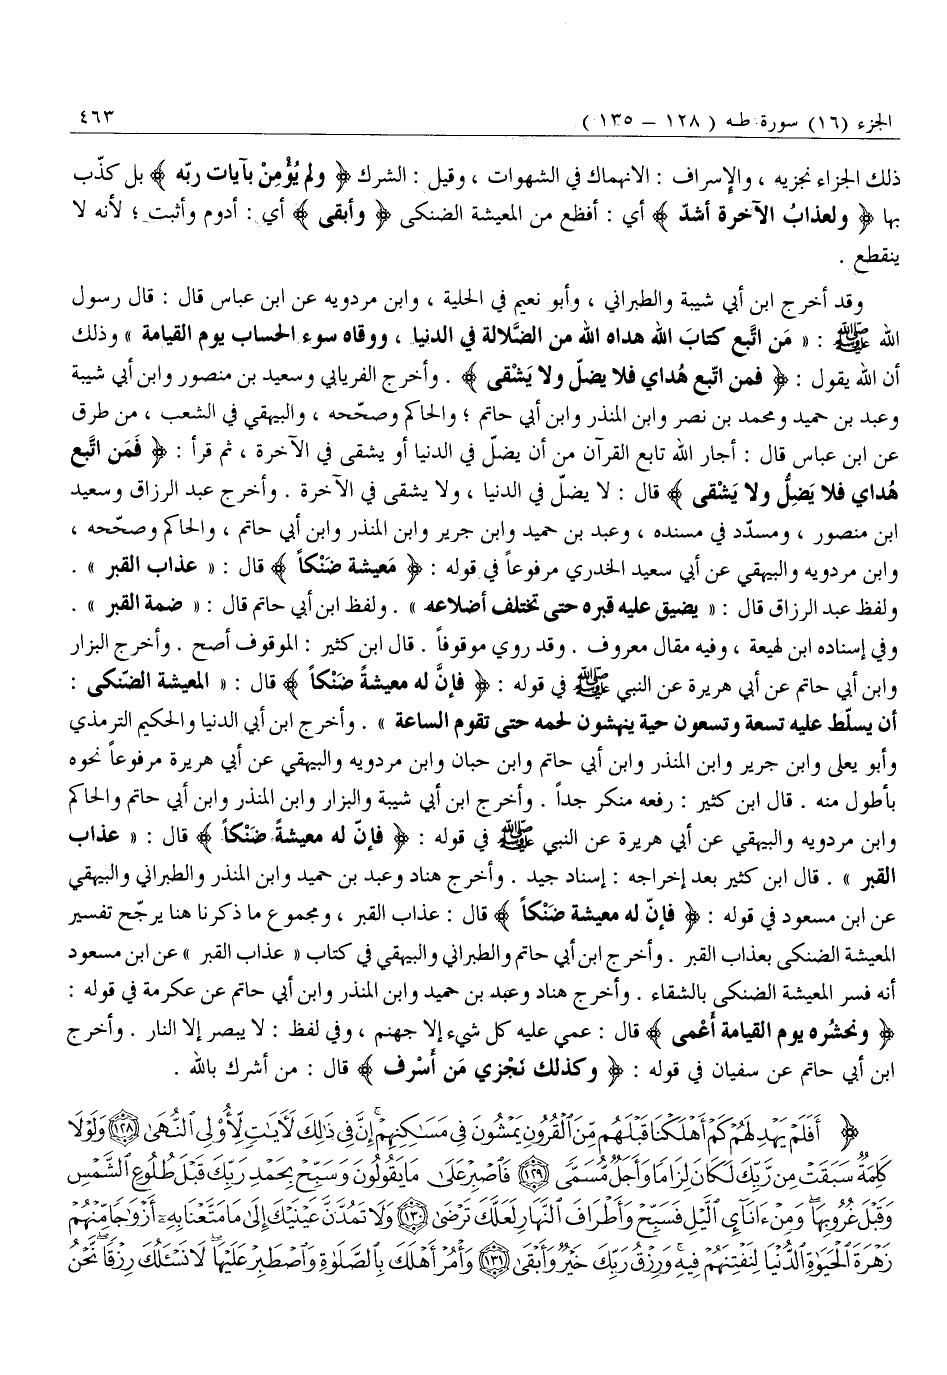 الجزء (١٦) سورة طه ( ١٢٨ – ١٣٥ ) ٤٦٣
ذلك الجزاء نجزيه ، والإسراف : الانهماك في الشهوات ، وقيل : الشرك ﴿ ولم يُؤْمِنْ بآيات ربّه ﴾ بل كذّب
بها ﴿ ولعذابُ الآخرة أشدّ ﴾ أي : أفظع من المعيشة الضنكى ﴿ وأبقى ﴾ أي : أدوم وأثبت ؛ لأنه لا
ينقطع .
وقد أخرج ابن أبي شيبة والطبراني ، وأبو نعيم في الحلية ، وابن مردويه عن ابن عباس قال : قال رسول
الله ﷺ : « مَن اتَّبع كتابَ الله هداه الله من الضَّلالة في الدنيا ، ووقاه سوء الحساب يوم القيامة » وذلك
أن الله يقول : ﴿ فمن اتّبع هُداي فلا يضلّ ولا يَشْقى ﴾ . وأخرج الفريابي وسعيد بن منصور وابن أبي شيبة
وعبد بن حميد ومحمد بن نصر وابن المنذر وابن أبي حاتم ؛ والحاكم وصحّحه ، والبيهقي في الشعب ، من طرق
عن ابن عباس قال : أجار الله تابع القرآن من أن يضلّ في الدنيا أو يشقى في الآخرة ، ثم قرأ : ﴿ فَمَن اتَّبع
هُداي فلا يَضلُّ ولا يَشْقى ﴾ قال : لا يضلّ في الدنيا ، ولا يشقى في الآخرة . وأخرج عبد الرزاق وسعيد
ابن منصور ، ومسدّد في مسنده ، وعبد بن حميد وابن جرير وابن المنذر وابن أبي حاتم ، والحاكم وصحّحه ،
وابن مردويه والبيهقي عن أبي سعيد الخدري مرفوعاً في قوله : ﴿ مَعيشة ضَنْكاً ﴾ قال : « عذاب القبر » .
ولفظ عبد الرزاق قال : « يضيق عليه قبره حتى تختلف أضلاعه » . ولفظ ابن أبي حاتم قال : « ضمة القبر » .
وفي إسناده ابن لهيعة ، وفيه مقال معروف . وقد روي موقوفاً . قال ابن كثير : الموقوف أصح . وأخرج البزار
وابن أبي حاتم عن أبي هريرة عن النبي ﷺ في قوله : ﴿ فإنَّ له معيشةً ضَنْكاً ﴾ قال : « المعيشة الضّنكى :
أن يسلّط عليه تسعة وتسعون حية ينهشون لحمه حتى تقوم الساعة » . وأخرج ابن أبي الدنيا والحكيم الترمذي
وأبو يعلى وابن جرير وابن المنذر وابن أبي حاتم وابن حبان وابن مردويه والبيهقي عن أبي هريرة مرفوعاً نحوه
بأطول منه . قال ابن كثير : رفعه منكر جداً . وأخرج ابن أبي شيبة والبزار وابن المنذر وابن أبي حاتم والحاكم
وابن مردويه والبيهقي عن أبي هريرة عن النبي ﷺ في قوله : ﴿ فإنّ له معيشةً ضَنْكاً ﴾ قال : « عذاب
القبر » . قال ابن كثير بعد إخراجه : إسناد جيد . وأخرج هناد وعبد بن حميد وابن المنذر والطبراني والبيهقي
عن ابن مسعود في قوله : ﴿ فإنّ له معيشة ضَنْكاً ﴾ قال : عذاب القبر ، ومجموع ما ذكرنا هنا يرجّح تفسير
المعيشة الضنكى بعذاب القبر . وأخرج ابن أبي حاتم والطبراني والبيهقي في كتاب « عذاب القبر » عن ابن مسعود
أنه فسر المعيشة الضنكى بالشقاء . وأخرج هناد وعبد بن حميد وابن المنذر وابن أبي حاتم عن عكرمة في قوله :
﴿ ونحشُره يوم القيامة أَعْمى ﴾ قال : عمي عليه كل شيء إلا جهنم ، وفي لفظ : لا يبصر إلا النار . وأخرج
ابن أبي حاتم عن سفيان في قوله : ﴿ وكذلك نَجْزي مَن أَسْرف ﴾ قال : من أشرك بالله .
﴿ أَفَلَمْ يَهْدِ لَهُمْ كَمْ أَهْلَكْنَا قَبْلَهُم مِّنَ ٱلْقُرُونِ يَمْشُونَ فِي مَسَٰكِنِهِمْ ۗ إِنَّ فِي ذَٰلِكَ لَأٓيَٰتٍ لِّأُو۟لِي ٱلنُّهَىٰ ﴿١٢٨﴾ وَلَوْلَا
كَلِمَةٌ سَبَقَتْ مِن رَّبِّكَ لَكَانَ لِزَامًا وَأَجَلٌ مُّسَمًّى ﴿١٢٩﴾ فَٱصْبِرْ عَلَىٰ مَا يَقُولُونَ وَسَبِّحْ بِحَمْدِ رَبِّكَ قَبْلَ طُلُوعِ ٱلشَّمْسِ
وَقَبْلَ غُرُوبِهَا ۖ وَمِنْ ءَانَآئِ ٱلَّيْلِ فَسَبِّحْ وَأَطْرَافَ ٱلنَّهَارِ لَعَلَّكَ تَرْضَىٰ ﴿١٣٠﴾ وَلَا تَمُدَّنَّ عَيْنَيْكَ إِلَىٰ مَا مَتَّعْنَا بِهِۦٓ أَزْوَٰجًا مِّنْهُمْ
زَهْرَةَ ٱلْحَيَوٰةِ ٱلدُّنْيَا لِنَفْتِنَهُمْ فِيهِ ۚ وَرِزْقُ رَبِّكَ خَيْرٌ وَأَبْقَىٰ ﴿١٣١﴾ وَأْمُرْ أَهْلَكَ بِٱلصَّلَوٰةِ وَٱصْطَبِرْ عَلَيْهَا ۖ لَا نَسْـَٔلُكَ رِزْقًا ۖ نَّحْنُ